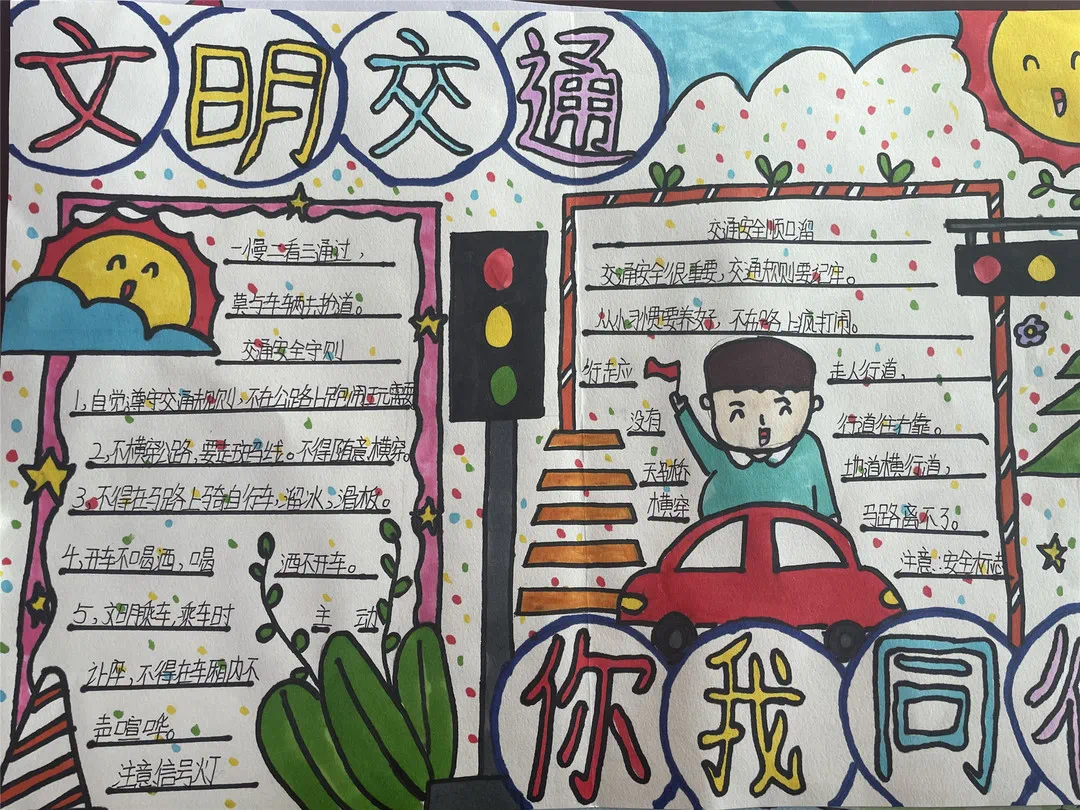 文明交通
一慢二看三通过，
莫与车辆去抢道。
交通安全守则
1、自觉遵守交通规则，不在公路上跑闹玩
2、不横穿公路，要走斑马线。不得随意横穿。
3、不得在马路上骑自行车，溜冰，滑板。
4、开车不喝酒，喝 酒不开车。
5、文明乘车，乘车时 主动
让座，不得在车厢内不
声喧哗。
注意信号灯
交通安全顺口溜
交通安全很重要，交通规则要记牢。
从小习惯要养好，不在路上疯打闹。
行走应 走人行道，
没有 行道往右靠。
天桥 地道横行道，
横穿 马路离不了。
注意：安全标志
你我同